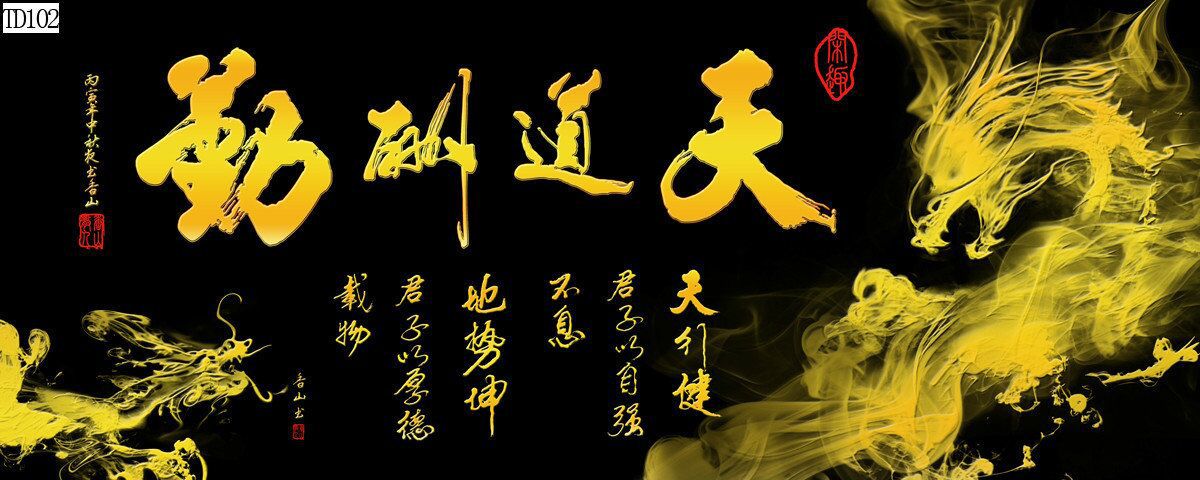 TD102
天道酬勤
天行健
君子以自强
不息
地势坤
君子以厚德
载物
丙寅年中秋夜书香山
香山书